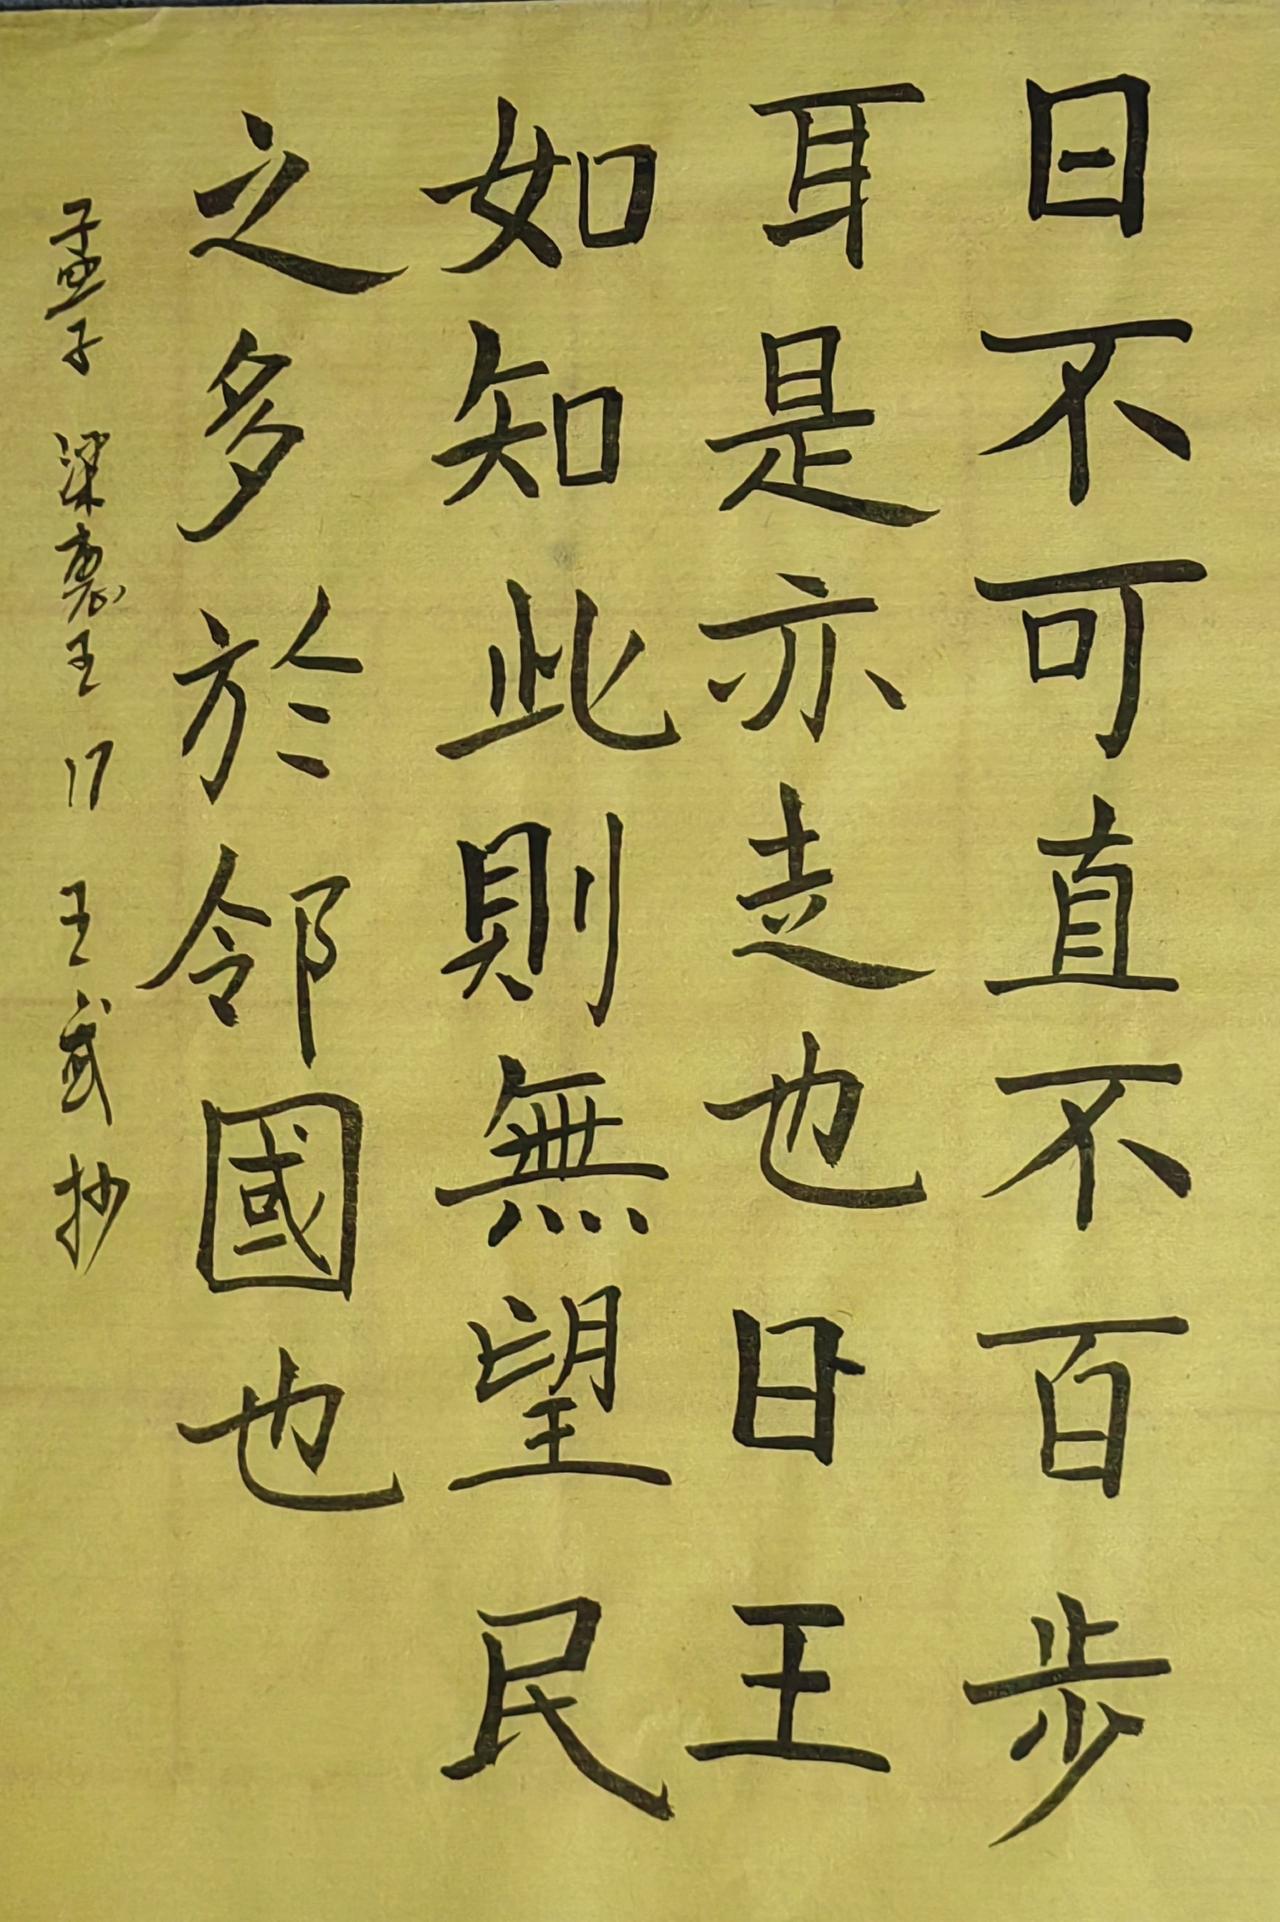 曰不可直不百步
耳是亦走也曰王
如知此則無望民
之多於鄰國也
孟子 梁惠王 17 王武抄